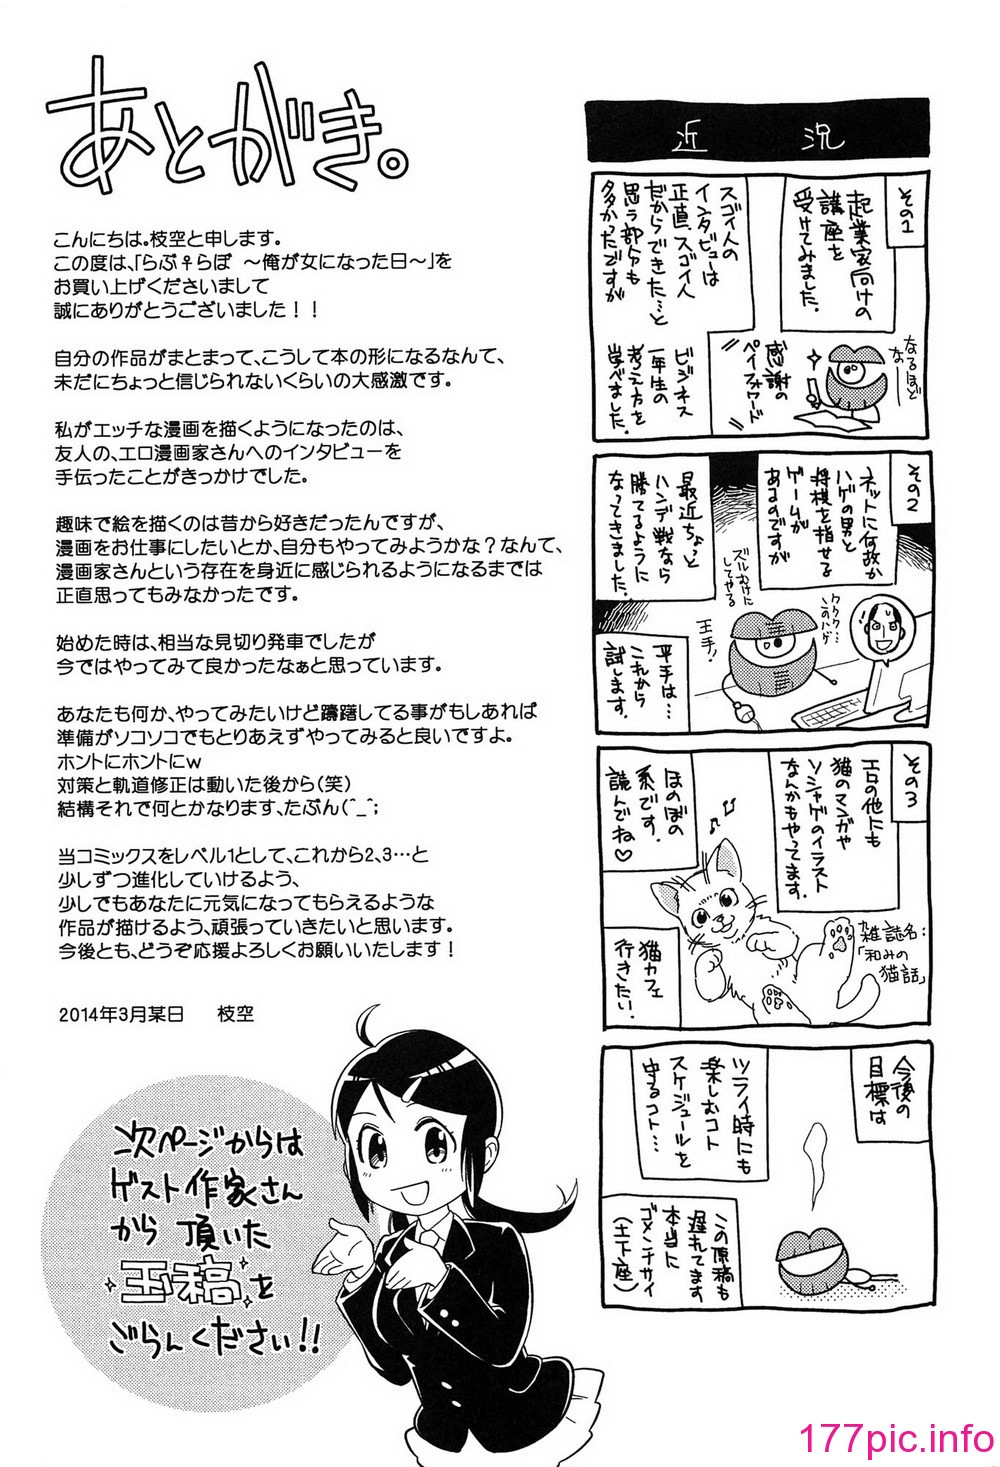 あとがき。
こんにちは。枝空と申します。
この度は、「らぶ♀らぼ ～俺が女になった日～」を
お買い上げくださいまして
誠にありがとうございました！！
自分の作品がまとまって、こうして本の形になるなんて、
未だにちょっと信じられないくらいの大感激です。
私がエッチな漫画を描くようになったのは、
友人の、エロ漫画家さんへのインタビューを
手伝ったことがきっかけでした。
趣味で絵を描くのは昔から好きだったんですが、
漫画をお仕事にしたいとか、自分もやってみようかな？なんて、
漫画家さんという存在を身近に感じられるようになるまでは
正直思ってもみなかったです。
始めた時は、相当な見切り発車でしたが
今ではやってみて良かったなぁと思っています。
あなたも何か、やってみたいけど躊躇してる事がもしあれば
準備がソコソコでもとりあえずやってみると良いですよ。
ホントにホントにw
対策と軌道修正は動いた後から(笑)
結構それで何とかなります、たぶん(^_^;
当コミックスをレベル1として、これから2、3…と
少しずつ進化していけるよう、
少しでもあなたに元気になってもらえるような
作品が描けるよう、頑張っていきたいと思います。
今後とも、どうぞ応援よろしくお願いいたします！
2014年3月某日 枝空
次ページからは
ゲスト作家さん
から頂いた
玉稿を
ごらんください!!
近況
その1
起業家向けの
講座を
受けてみました。
スゴイ人の
インタビューは
正直、スゴイ人
だからできた…と
思う部分も
多かったですが
なるほど
なー
感謝の
ペイフォワード
ビジネス
一年生の
考え方を
学べました。
その2
ネットに何故か
ハゲの男と
将棋を指せる
ゲームが
あるのですが
最近ちょっと
ハンデ戦なら
勝てるように
なってきました。
ククク…
このハゲ
ズルむけに
してやる
王手！
平手は…
これから
試します。
その3
エロの他にも
猫のマンガや
ソシャゲのイラスト
なんかもやってます。
ほのぼの
系です。
読んでね♡
雑誌名：
「和みの
猫話」
猫カフェ
行きたい。
今後の
目標は
ツライ時にも
楽しむコト
スケジュールを
守るコト…
この原稿も
遅れてます
本当に
ゴメンナサイ
(土下座)
177pic.info